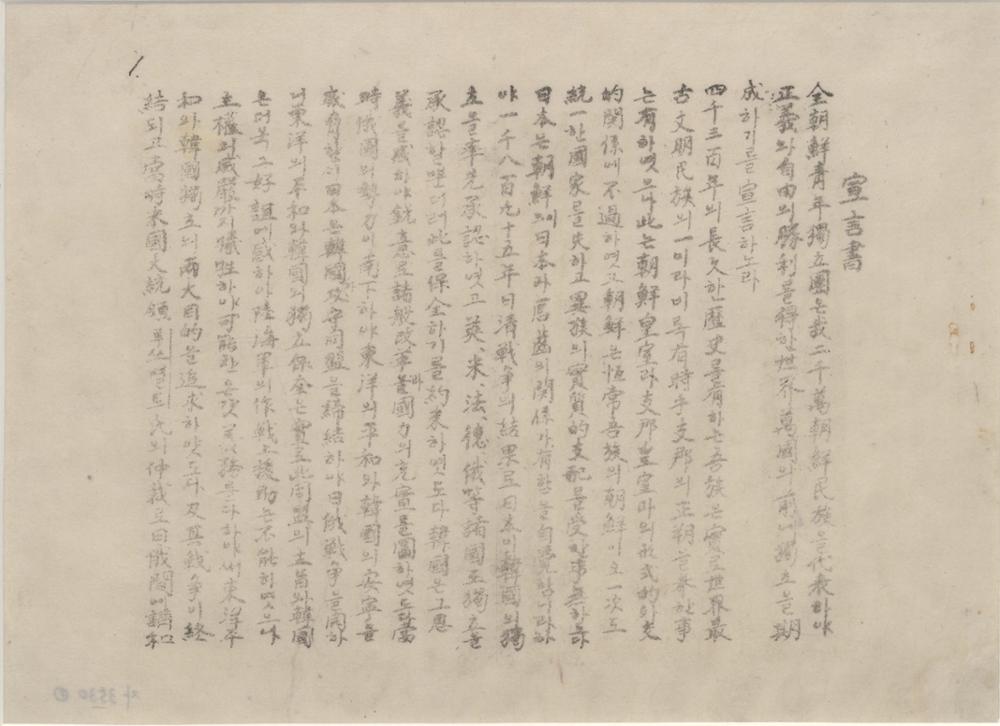 1.
宣言書
全朝鮮青年獨立團은我二千萬朝鮮民族을代表하야
正義와自由의勝利를得한世界萬國의前에獨立을期
成하기를宣言하노라
四千三百年의長久한歷史를有하는吾族은實로世界最
古文明民族의一이라비록有時乎支那의正朔을奉한事
는有하엿으나此는朝鮮皇室과支那皇室과의形式的外交
的關係에不過하엿고朝鮮은恒常吾族의朝鮮이오一次도
統一한國家를失하고異族의實質的支配를受한事無하도다
日本은朝鮮이日本과唇齒의關係가有함을自覺함이라하
야一千八百九十五年日清戰爭의結果로日本이韓國의獨
立을率先承認하엿고英、米、法、德、俄等諸國도獨立을
承認할뿐더러此를保全하기를約束하엿도다韓國은그恩
義를感하야銳意로諸般改革과國力의充實을圖하엿도다當
時俄國의勢力이南下하야東洋의平和와韓國의安寧을
威脅할새日本은韓國과攻守同盟을締結하야日俄戰爭을開하
니東洋의平和와韓國의獨立保全은實로此同盟의主旨와韓國
은더욱그好誼에感하야陸海軍의作戰上援助는不能하엿으나
主權의威嚴까지犧牲하야可能한온갖義務를다하야써東洋平
和와韓國獨立의兩大目的을追求하얏도다及其戰爭이終
結되고當時米國大統領루쓰벨트氏의仲裁로日俄間에講和
자3530